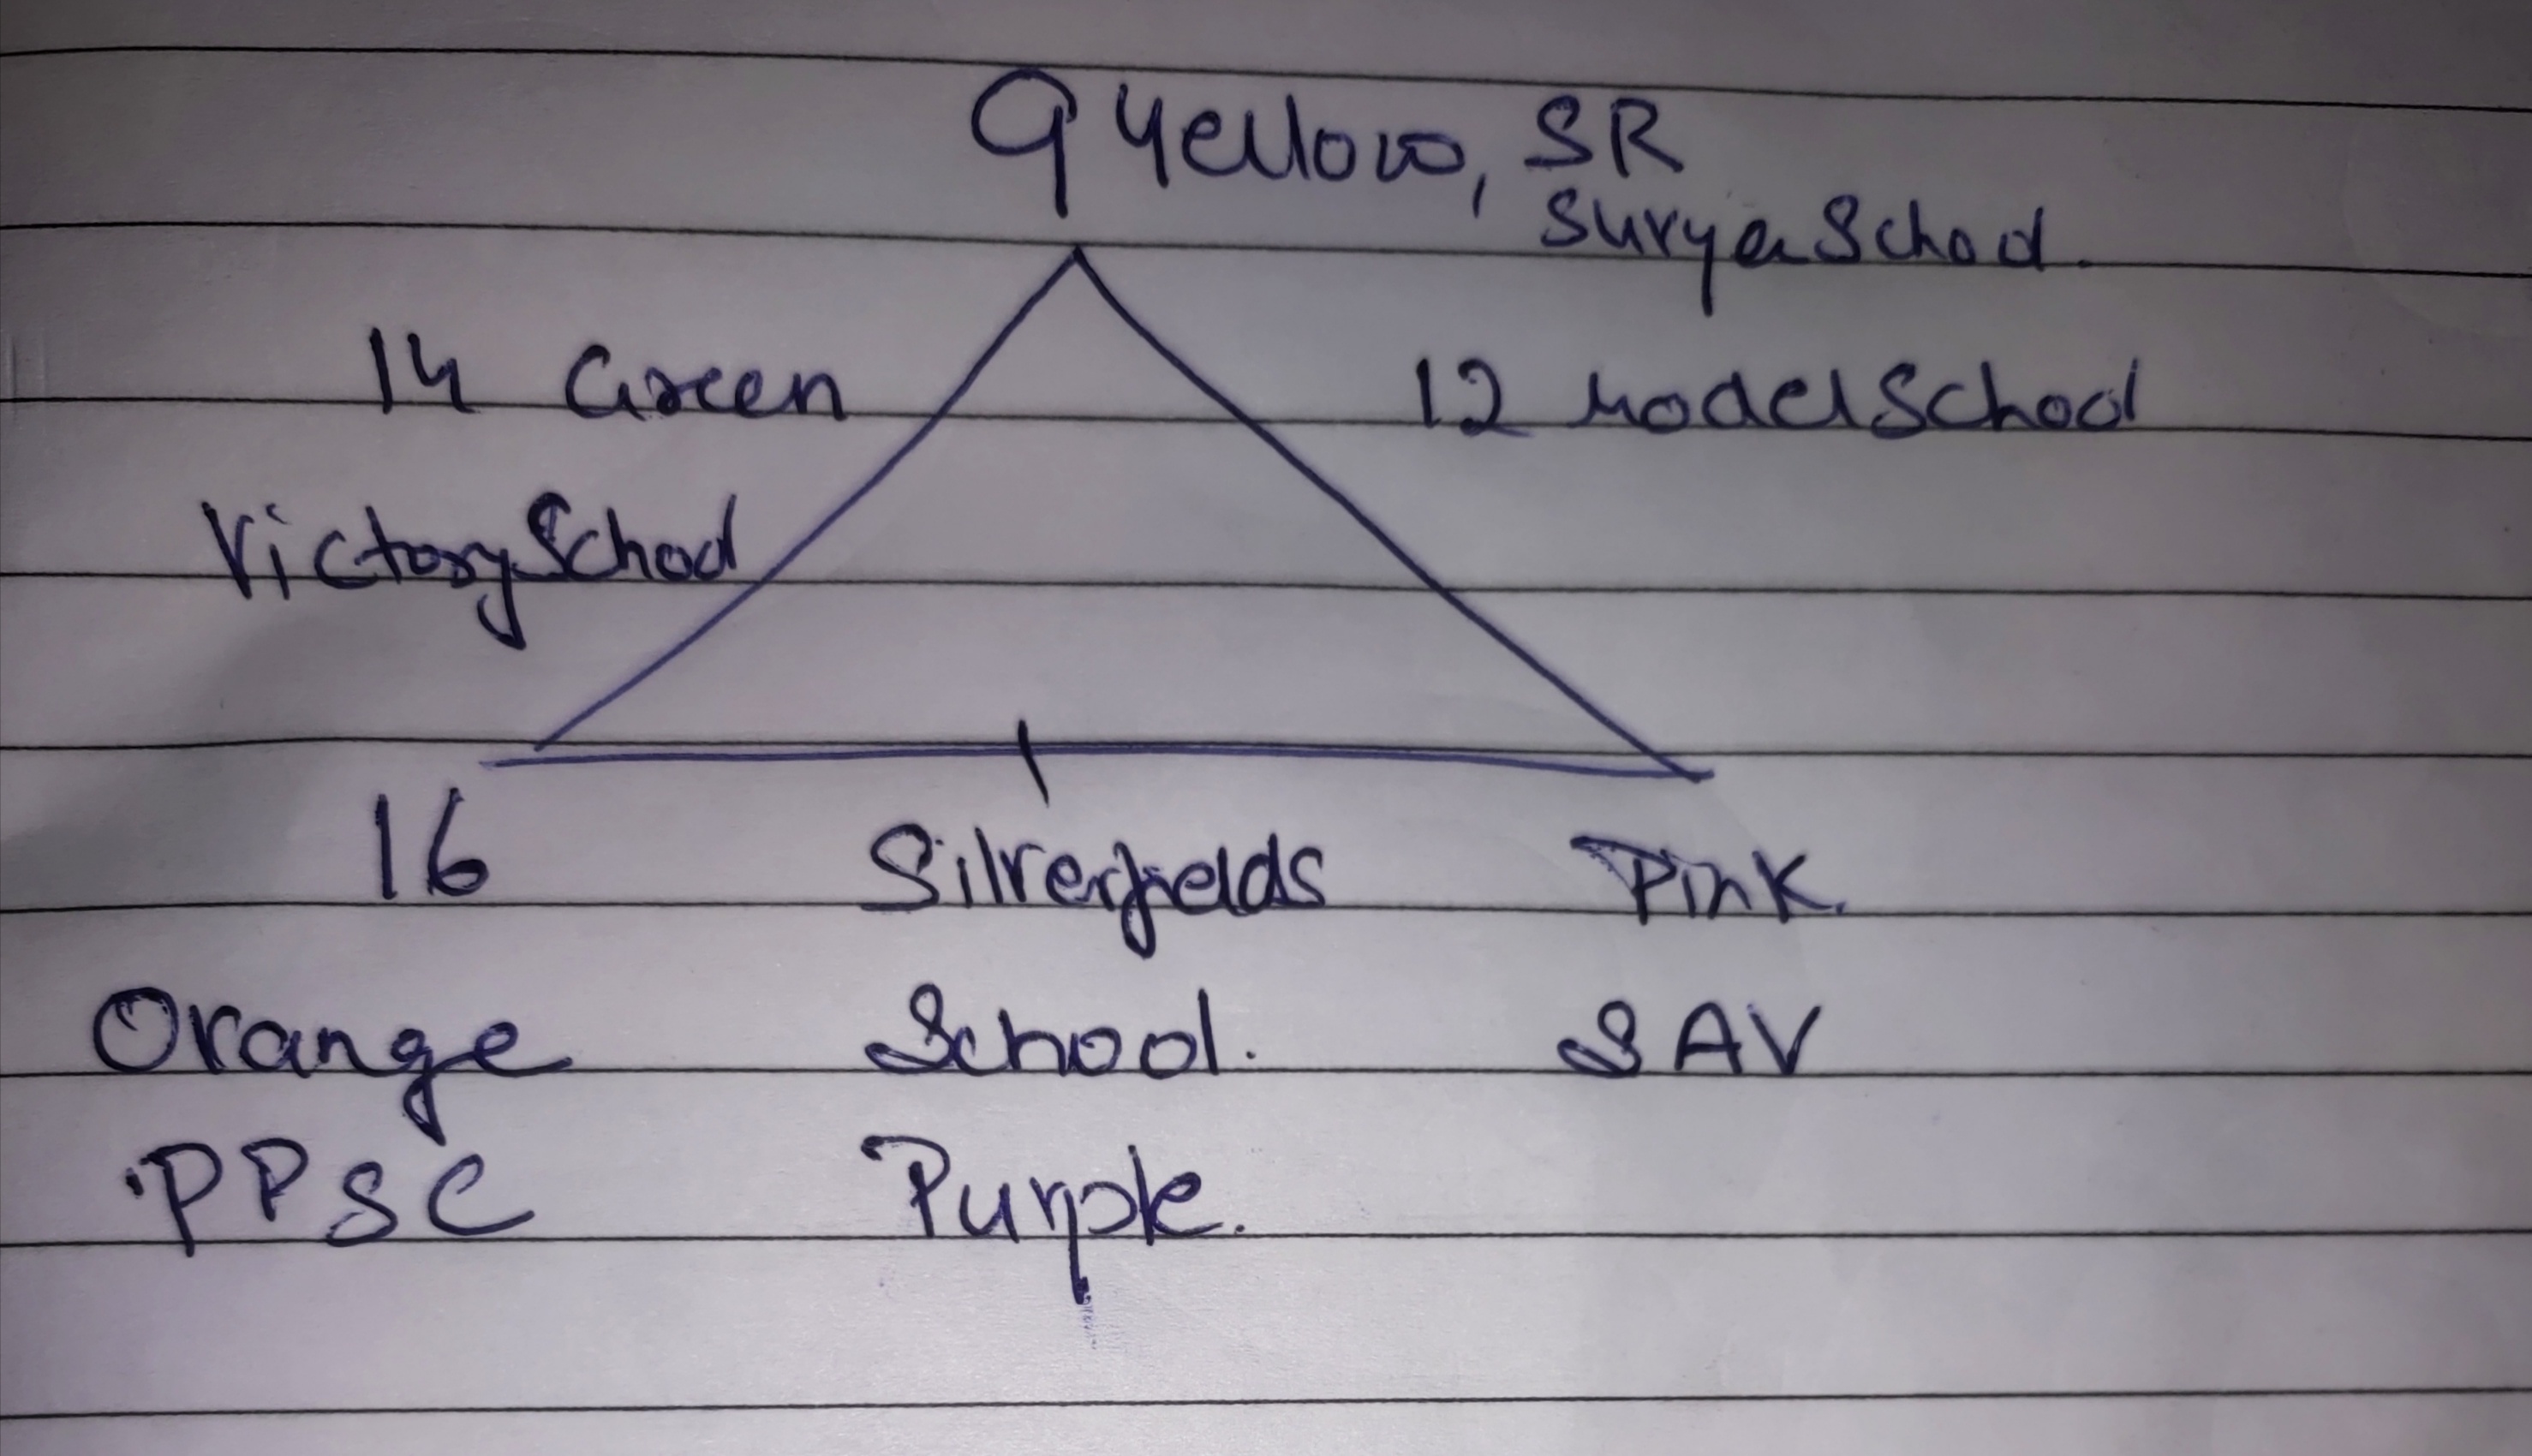 9 Yellow, SR
Surya School.
14 Green
12 Model School
Victory School
16 Silverfields Pink.
Orange School. SAV
PPSC Purple.